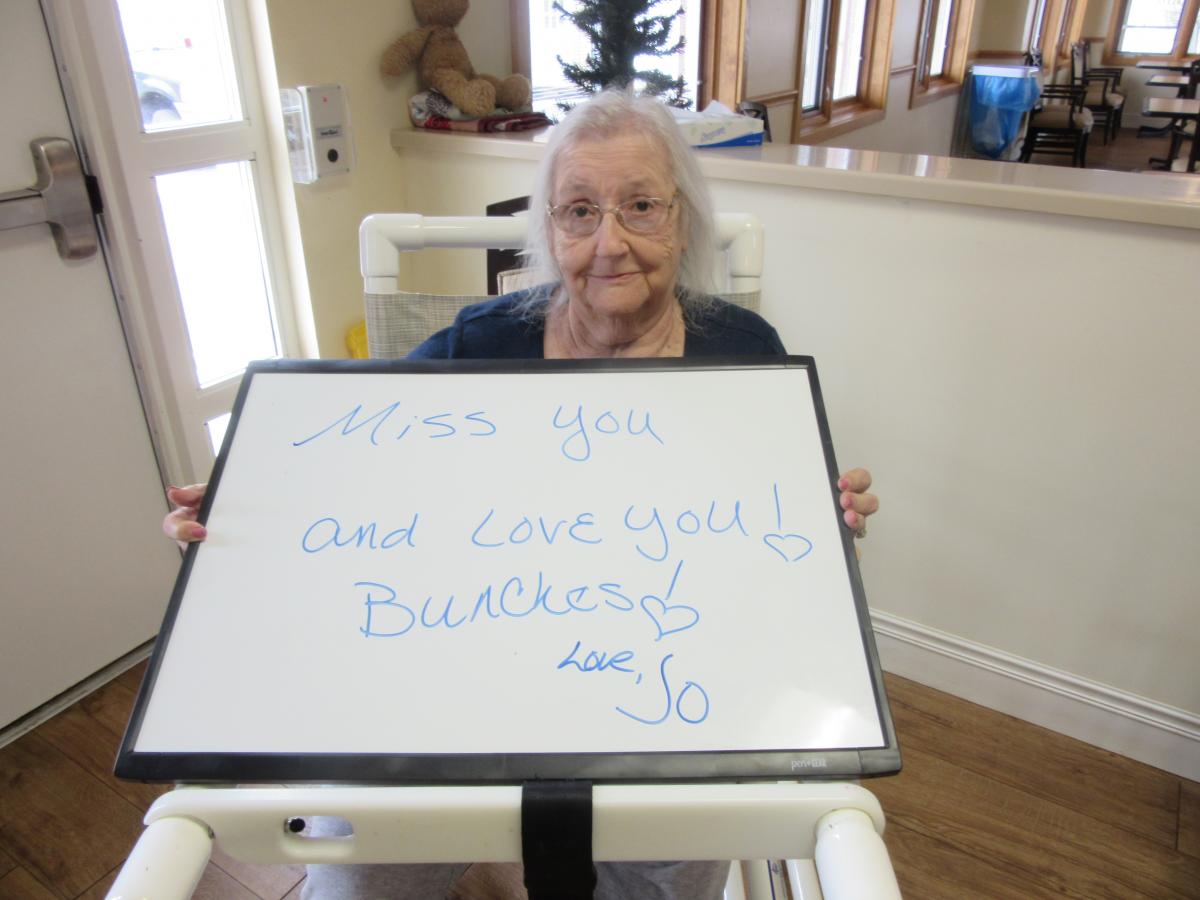 Miss you
and Love you!
Bunches!
Love,
Jo